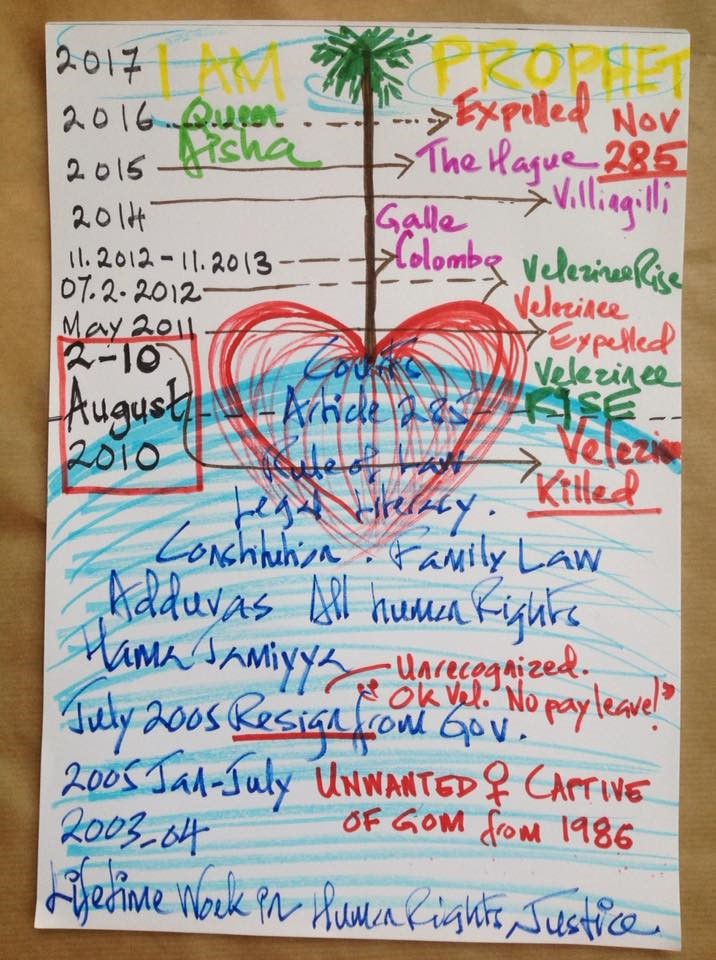 2017 I AM PROPHET
2016 Queen Aisha Expelled Nov
2015 The Hague 285
2014 Villingilli
Galle
11.2012-11.2013 Colombo
07.2.2012 Velezinee Rise
May 2011 Velezinee Expelled
2-10 August 2010
Courts
Velezinee RISE
Article 285
Rule of Law
Killed
Legal Literacy.
Constitution. Family Law
Adduvas All human Rights
Hama Jamiyya
Unrecognized.
"Ok Vel. No pay leave!"
July 2005 Resign from Gov.
2005 Jan-July UNWANTED ♀ CAPTIVE
2003-04 OF GOM from 1986
Lifetime Work in Human Rights, Justice.